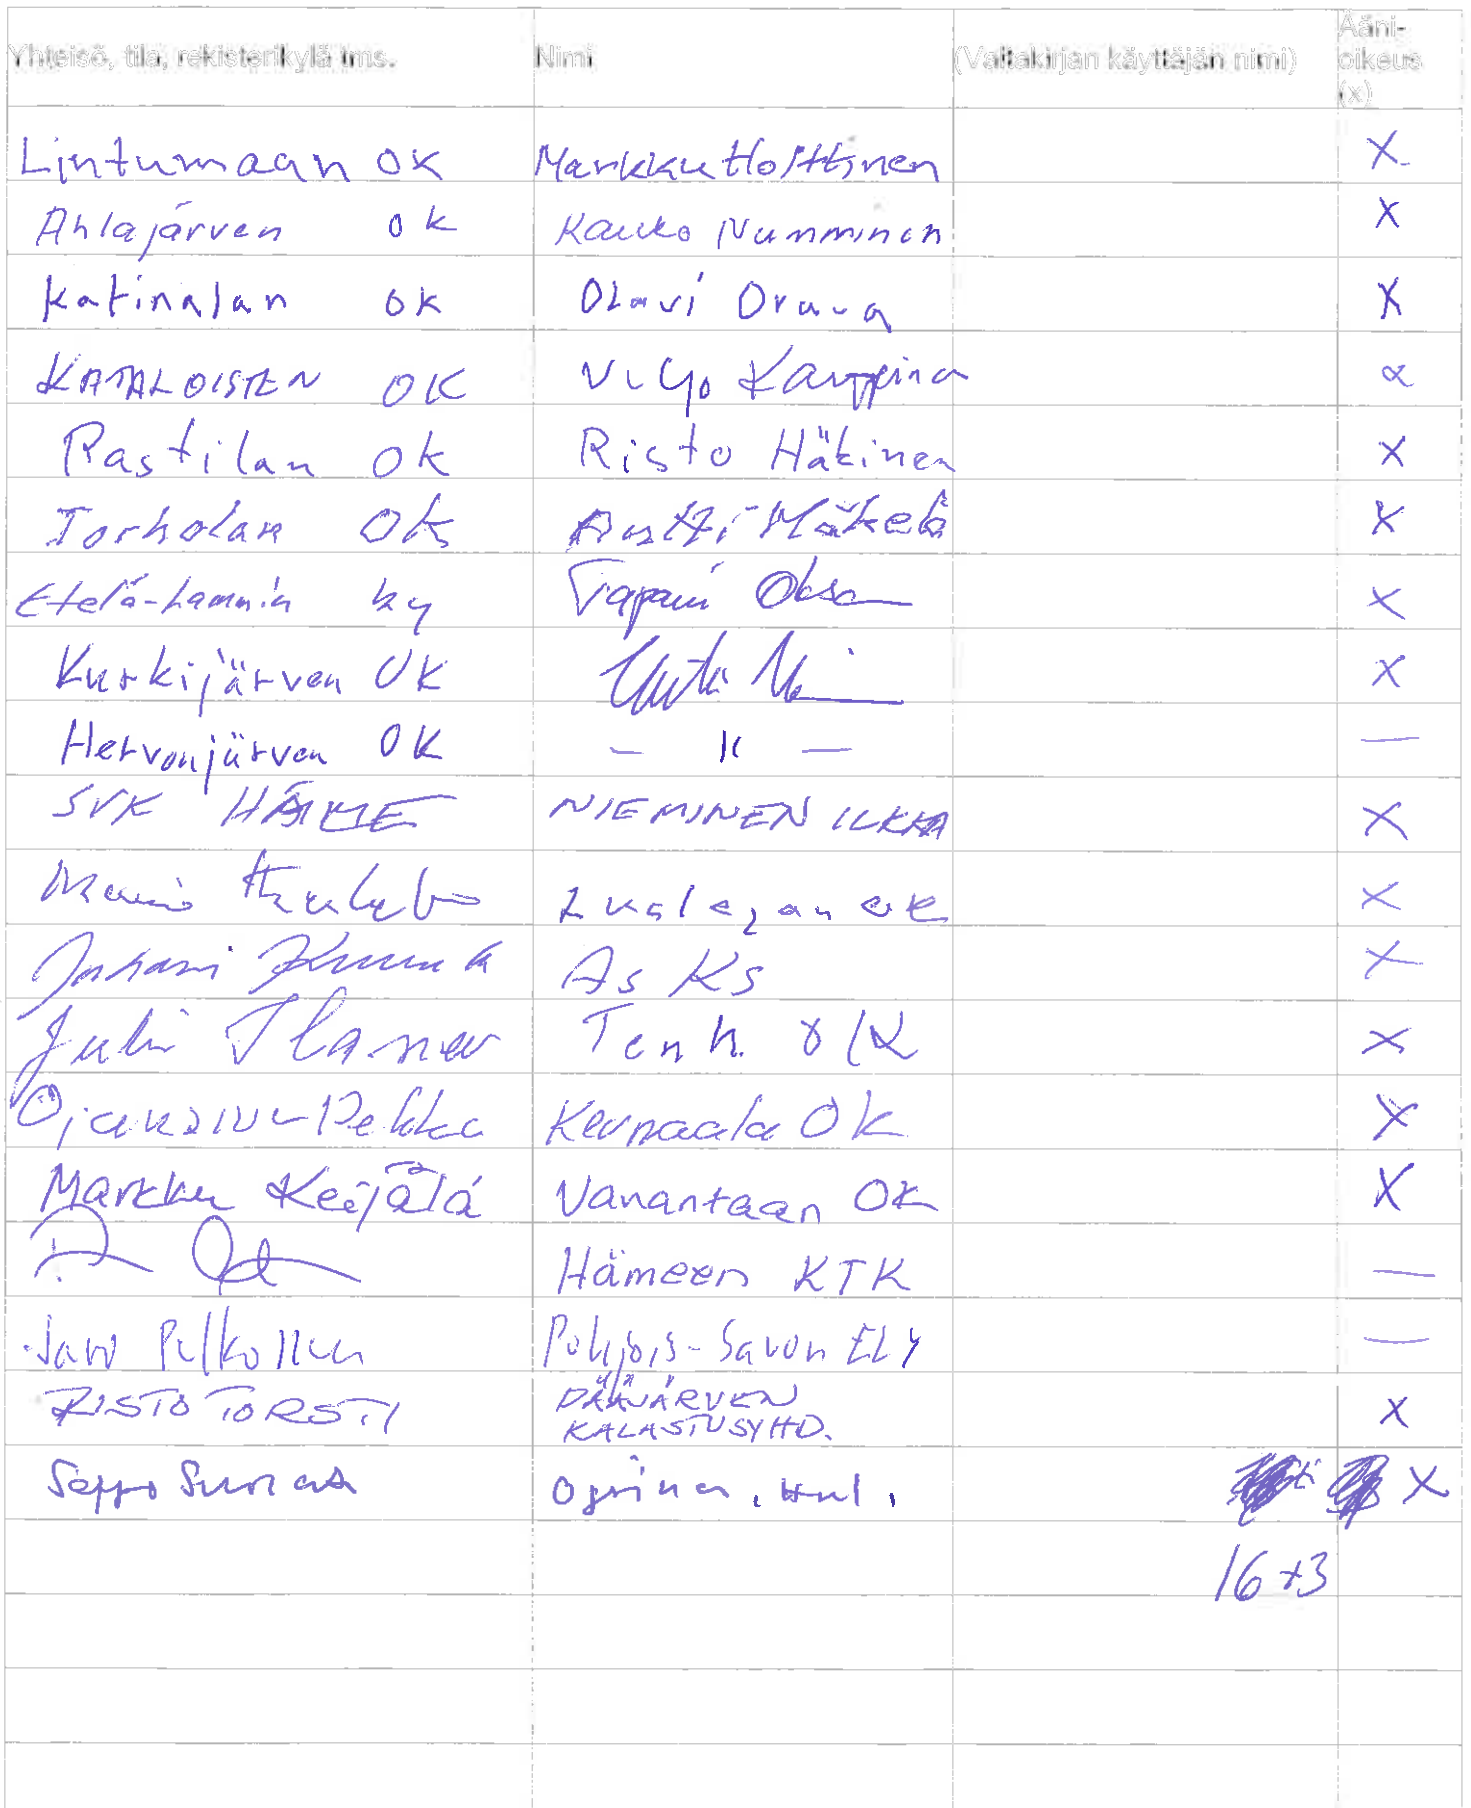 Yhteisö, tila, rekisterikylä tms. Nimi (Valtakirjan käyttäjän nimi) Ääni-
oikeus
(x)
Lintumaan OK Markku Holttinen X
Ahlajärven ok Kauko Numminen X
Katinalan OK Olavi Orava X
KATALOISTEN OK Viljo Kauppinen
Pastilan OK Risto Häkinen X
Torholan OK Antti Mäkelä X
Etelä-Lammin ky Tapani X
Kurkijärven OK X
Hervonjärven OK — " — —
SVK HÄME NIEMINEN ILKKA X
ok X
Juhani As Ks X
Juhi Tenh. OK X
Pekka Kernaala OK X
Markku Keijälä Vanantaan OK X
Hämeen KTK —
Pohjois-Savon ELY —
RISTO TORSTI PÄÄJÄRVEN
KALASTUSYHD. X
Seppo X
16+3